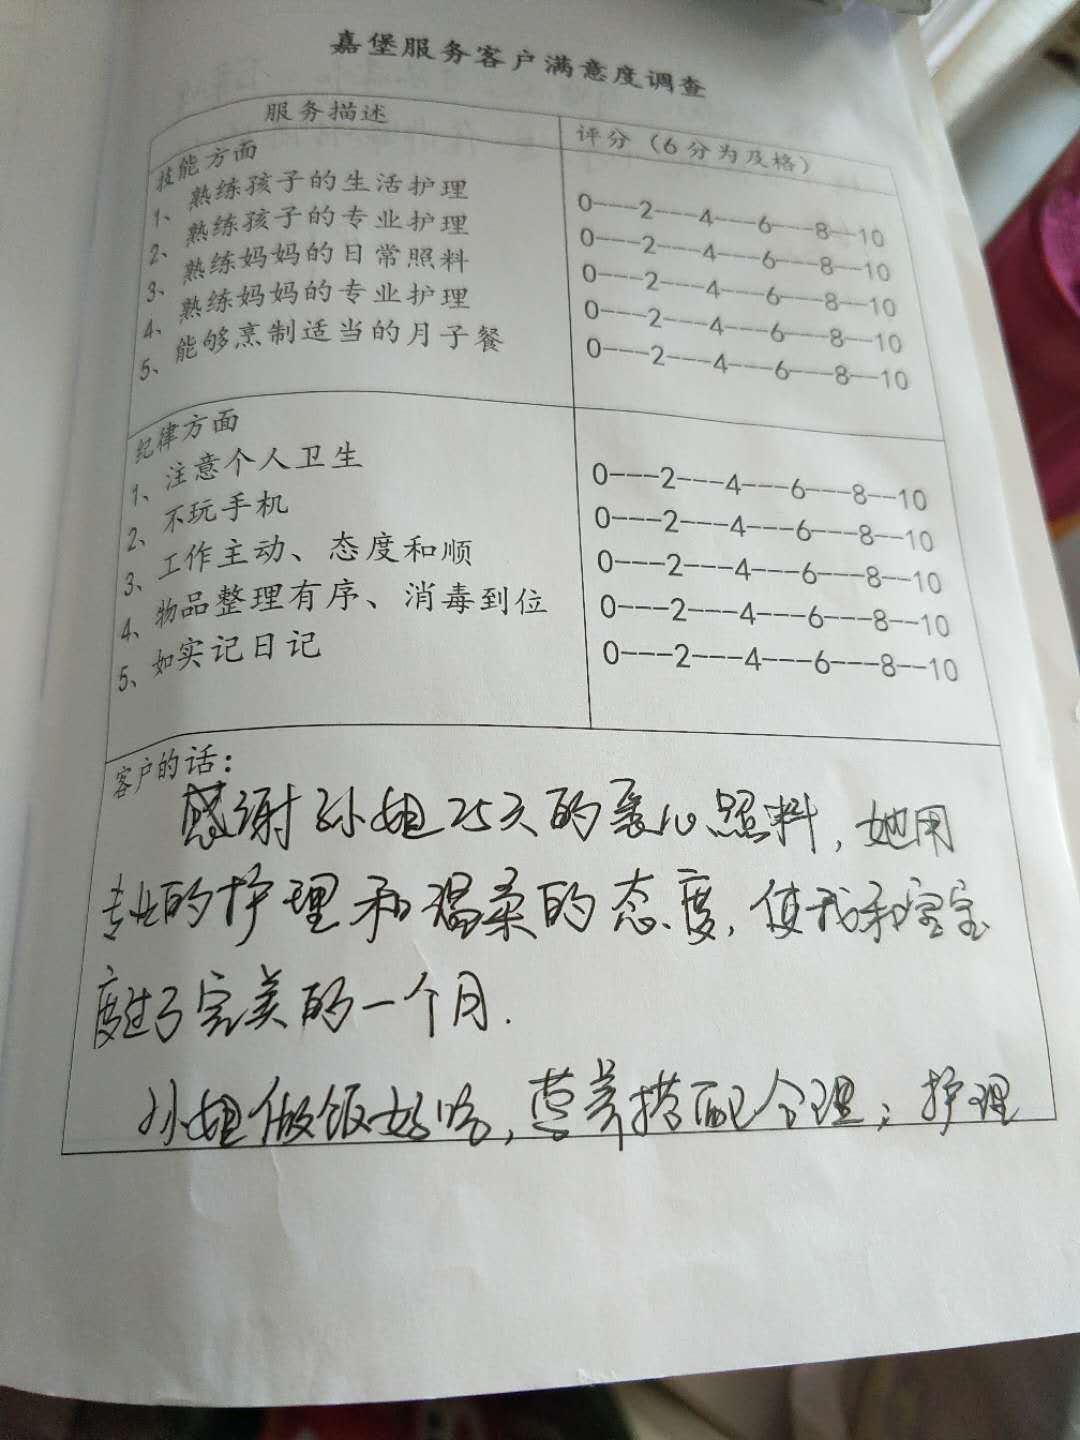 嘉堡服务客户满意度调查
服务描述
评分（6分为及格）
技能方面
1、熟练孩子的生活护理
0---2---4---6---8--10
2、熟练孩子的专业护理
0---2---4---6---8--10
3、熟练妈妈的日常照料
0---2---4---6---8--10
4、熟练妈妈的专业护理
0---2---4---6---8--10
5、能够烹制适当的月子餐
0---2---4---6---8--10
纪律方面
1、注意个人卫生
0---2---4---6---8--10
2、不玩手机
0---2---4---6---8--10
3、工作主动、态度和顺
0---2---4---6---8--10
4、物品整理有序、消毒到位
0---2---4---6---8--10
5、如实记日记
0---2---4---6---8--10
客户的话：
感谢孙姐25天的悉心照料，她用
专业的护理和温柔的态度，使我和宝宝
度过了完美的一个月.
孙姐做饭好吃，营养搭配合理；护理